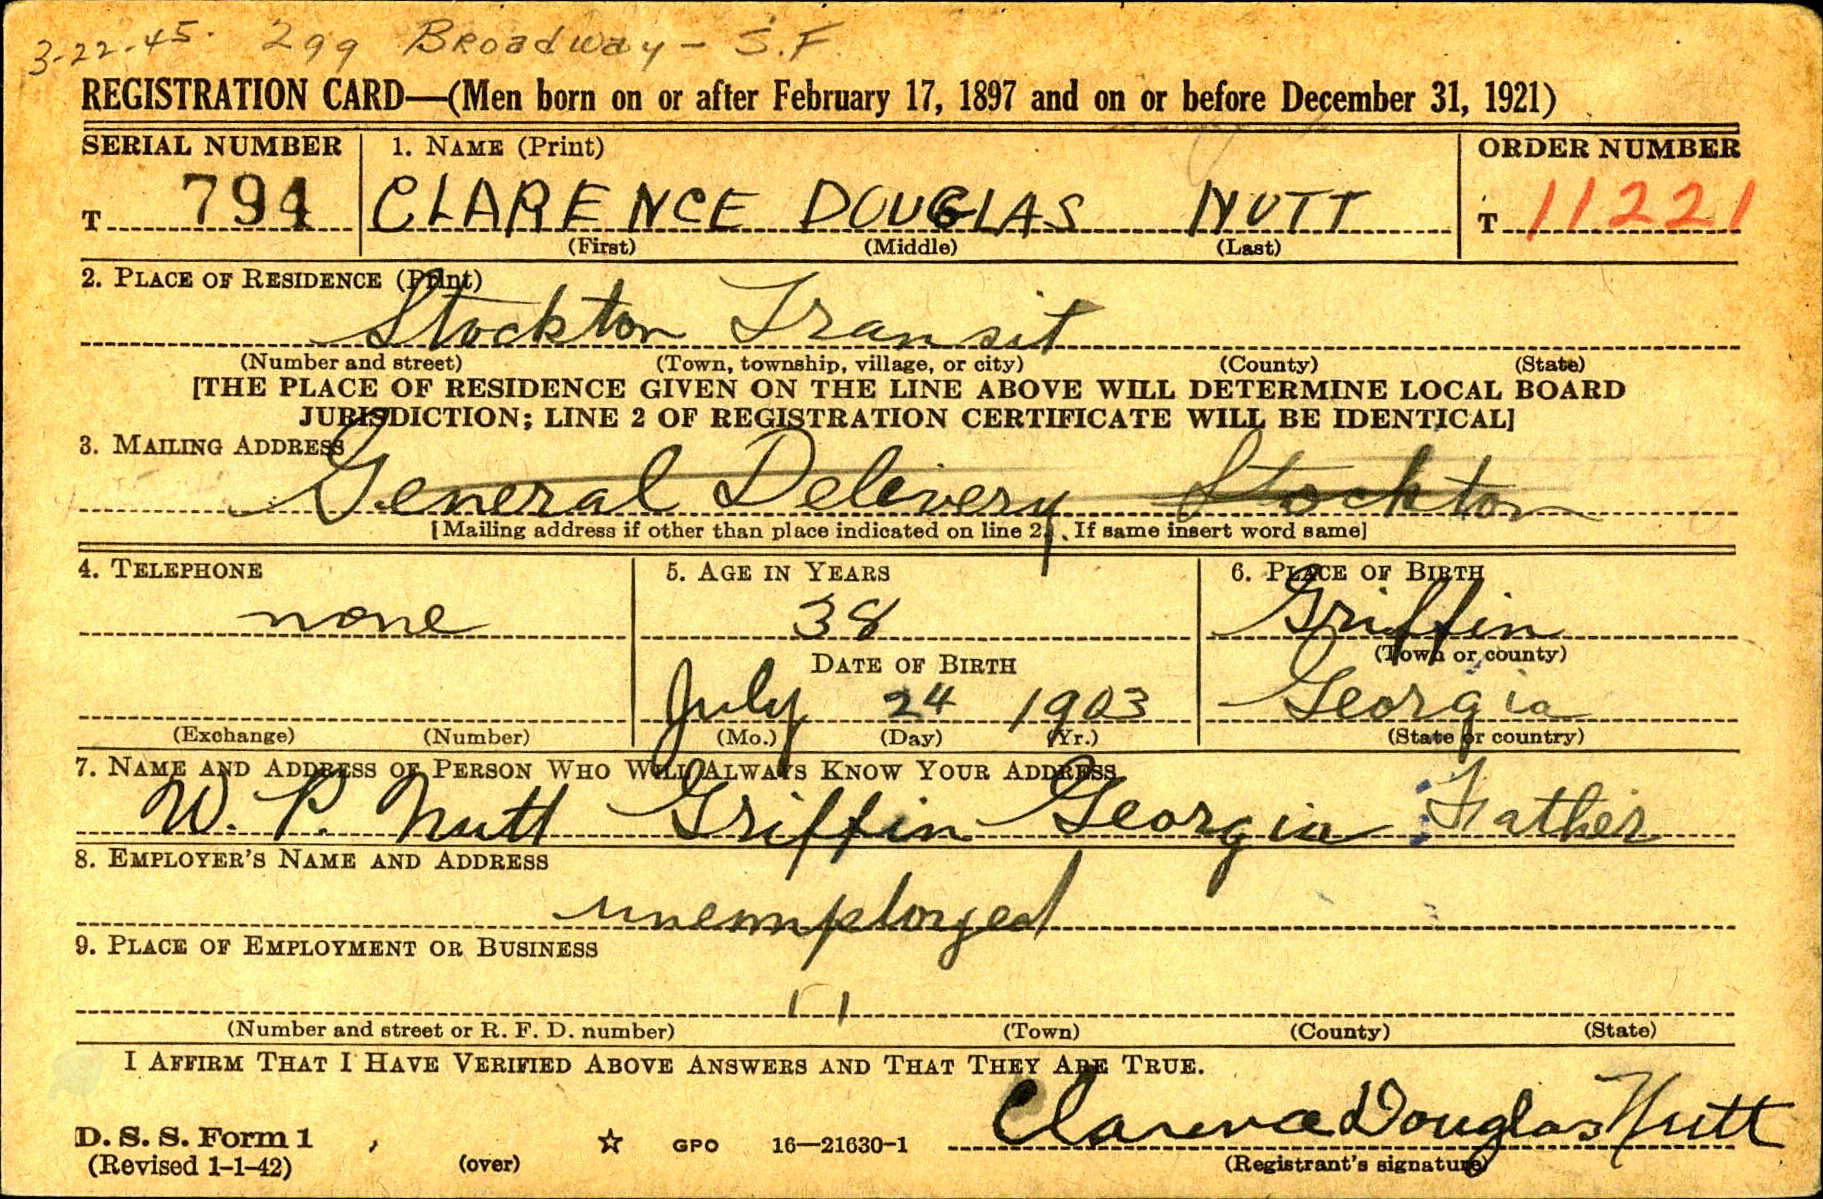 3-22-45. 299 Broadway - S.F.
REGISTRATION CARD—(Men born on or after February 17, 1897 and on or before December 31, 1921)
SERIAL NUMBER 1. NAME (Print) ORDER NUMBER
T 794 CLARENCE DOUGLAS NUTT T 11221
(First) (Middle) (Last)
2. PLACE OF RESIDENCE (Print)
Stockton Transit
(Number and street) (Town, township, village, or city) (County) (State)
[THE PLACE OF RESIDENCE GIVEN ON THE LINE ABOVE WILL DETERMINE LOCAL BOARD
JURISDICTION; LINE 2 OF REGISTRATION CERTIFICATE WILL BE IDENTICAL]
3. MAILING ADDRESS
General Delivery Stockton
[Mailing address if other than place indicated on line 2. If same insert word same]
4. TELEPHONE 5. AGE IN YEARS 6. PLACE OF BIRTH
none 38 Griffin
DATE OF BIRTH (Town or county)
July 24 1903 Georgia
(Exchange) (Number) (Mo.) (Day) (Yr.) (State or country)
7. NAME AND ADDRESS OF PERSON WHO WILL ALWAYS KNOW YOUR ADDRESS
W. P. Nutt Griffin Georgia Father
8. EMPLOYER'S NAME AND ADDRESS
unemployed
9. PLACE OF EMPLOYMENT OR BUSINESS
" 
(Number and street or R. F. D. number) (Town) (County) (State)
I AFFIRM THAT I HAVE VERIFIED ABOVE ANSWERS AND THAT THEY ARE TRUE.
Clarence Douglas Nutt
D. S. S. Form 1
(Revised 1-1-42) (over) ☆ GPO 16—21630-1 (Registrant's signature)